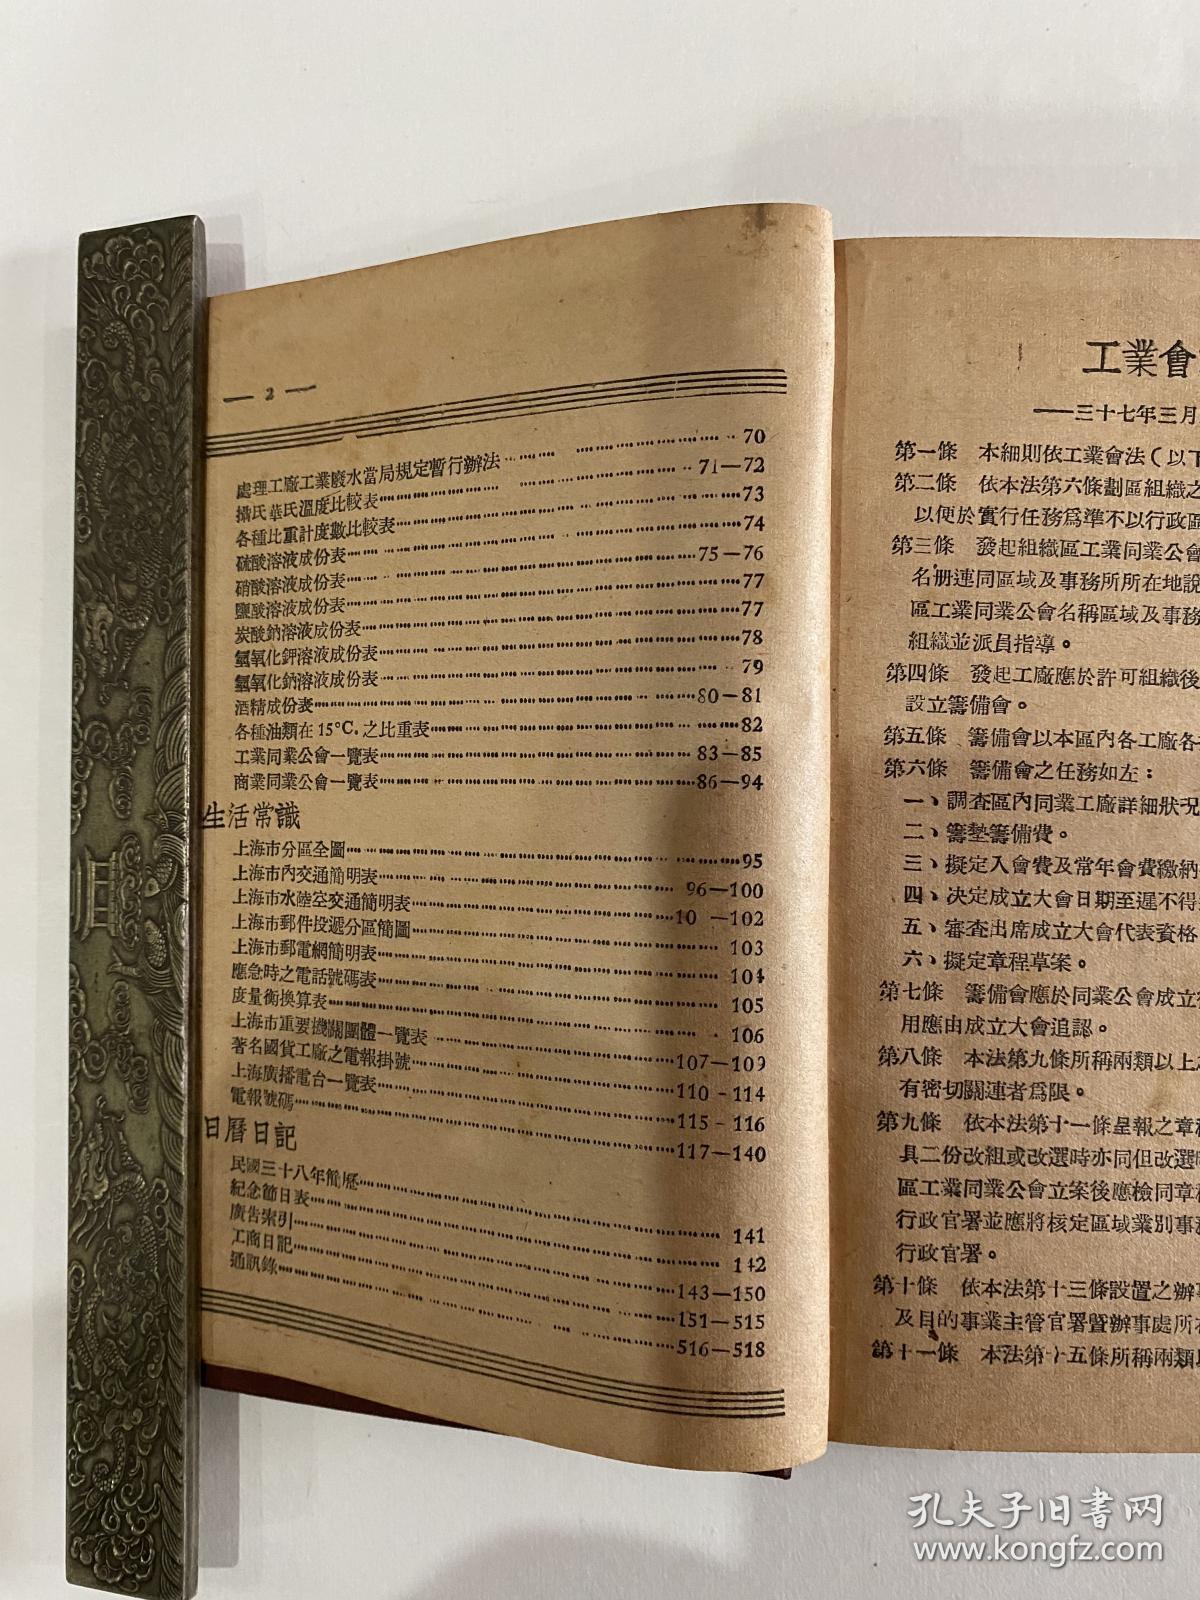 — 2 —
處理工廠工業廢水當局規定暫行辦法……70
攝氏華氏溫度比較表……71—72
各種比重計度數比較表……73
硫酸溶液成份表……74
硝酸溶液成份表……75—76
鹽酸溶液成份表……77
炭酸鈉溶液成份表……77
氫氧化鉀溶液成份表……78
氫氧化鈉溶液成份表……79
酒精成份表……80—81
各種油類在15°C.之比重表……82
工業同業公會一覽表……83—85
商業同業公會一覽表……86—94
生活常識
上海市分區全圖……95
上海市內交通簡明表……96—100
上海市水陸空交通簡明表……10 —102
上海市郵件投遞分區簡圖……103
上海市郵電網簡明表……104
應急時之電話號碼表……105
度量衡換算表……106
上海市重要機關團體一覽表……107—109
著名國貨工廠之電報掛號……110-114
上海廣播電台一覽表……115-116
電報號碼……117—140
日曆日記
民國三十八年簡歷……141
紀念節日表……142
廣告索引……143—150
工商日記……151—515
通訊錄……516—518
工業會
——三十七年三月
第一條　本細則依工業會法(以下
第二條　依本法第六條劃區組織之
以便於實行任務爲準不以行政區
第三條　發起組織區工業同業公會
名册連同區域及事務所所在地說
區工業同業公會名稱區域及事務
組織並派員指導。
第四條　發起工廠應於許可組織後
設立籌備會。
第五條　籌備會以本區內各工廠各
第六條　籌備會之任務如左：
一、調查區內同業工廠詳細狀況
二、籌墊籌備費。
三、擬定入會費及常年會費繳納
四、决定成立大會日期至遲不得
五、審查出席成立大會代表資格
六、擬定章程草案。
第七條　籌備會應於同業公會成立
用應由成立大會追認。
第八條　本法第九條所稱兩類以上
有密切關連者爲限。
第九條　依本法第十一條呈報之章程
具二份改組或改選時亦同但改選
區工業同業公會立案後應檢同章程
行政官署並應將核定區域業別事務
行政官署。
第十條　依本法第十三條設置之辦事
及目的事業主管官署暨辦事處所在
第十一條　本法第十五條所稱兩類以
孔夫子旧书网
www.kongfz.com